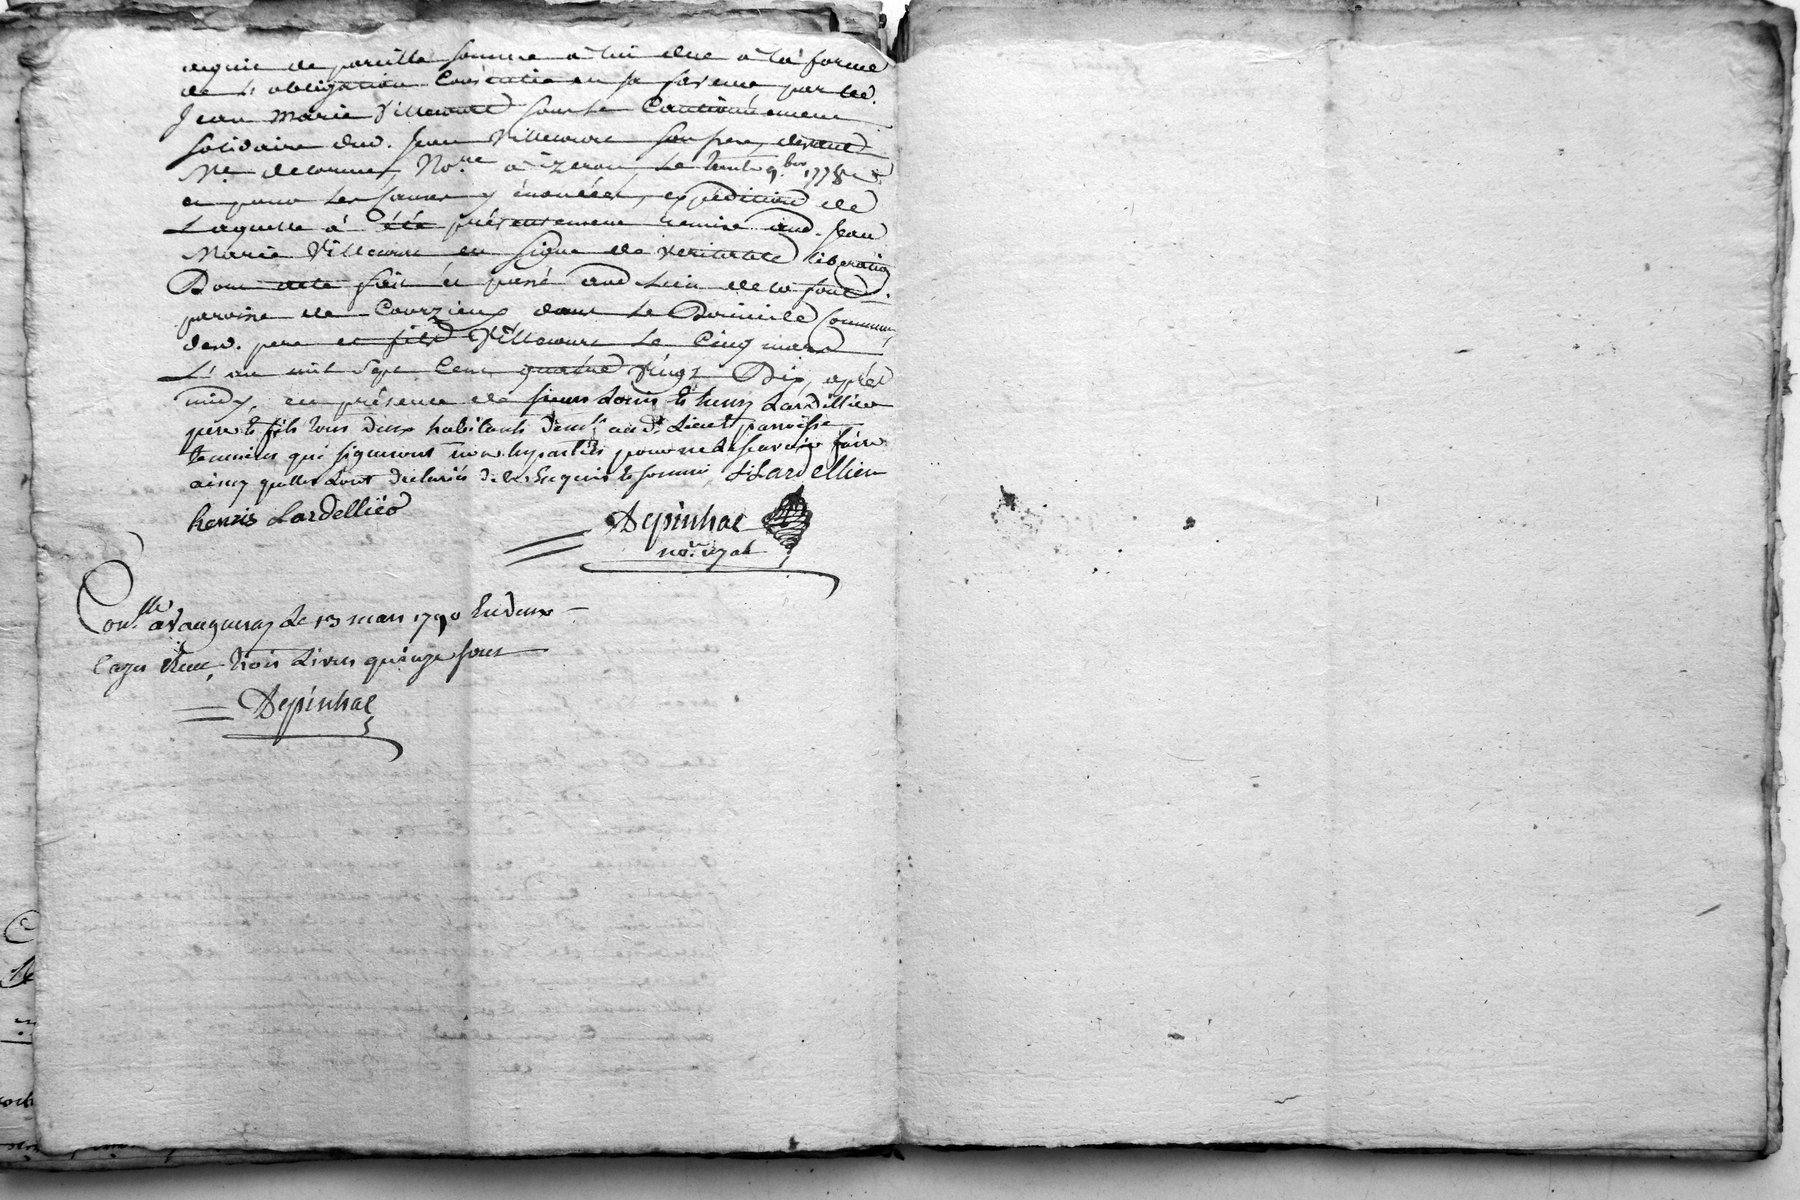 acquis de pareille somme a lui due a la forme
de l'obligation Consentie en sa faveur par led.
Jean Marie Villecourt sous le Cautionnement
solidaire dud. Jean Villecourt son pere, devant
Me. delorme, Nore. a izeron, le trente 9bre 1778
et pour les causes y énoncées, expédition de
Laquelle à été présentement remise aud. Jean
Marie Villecourt en signe de veritable liberation
Dont acte fait et passé aud Lieu de la font.
paroisse de Courzieux dans le Domicile Commun
desd. pere et fils Villecourt le Cinq mars
L'an mil Sept Cent quatre Vingt Dix, après
midy, en présence de sieurs Louis et henry Lardellier
pere et fils tous deux habitants aud. Lieu et parroisse
temoins qui signeront non les parties pour ne le scavoir faire
ainsy quelles L'ont declarés de ce Enquis et sommé, L Lardellier
henris Lardellier
Depinhac
nore. royal
Conlle. a Vaugneray Le 13 mars 1790 Endeux
Cazes Reçu, trois Livres quinze sous
Depinhac